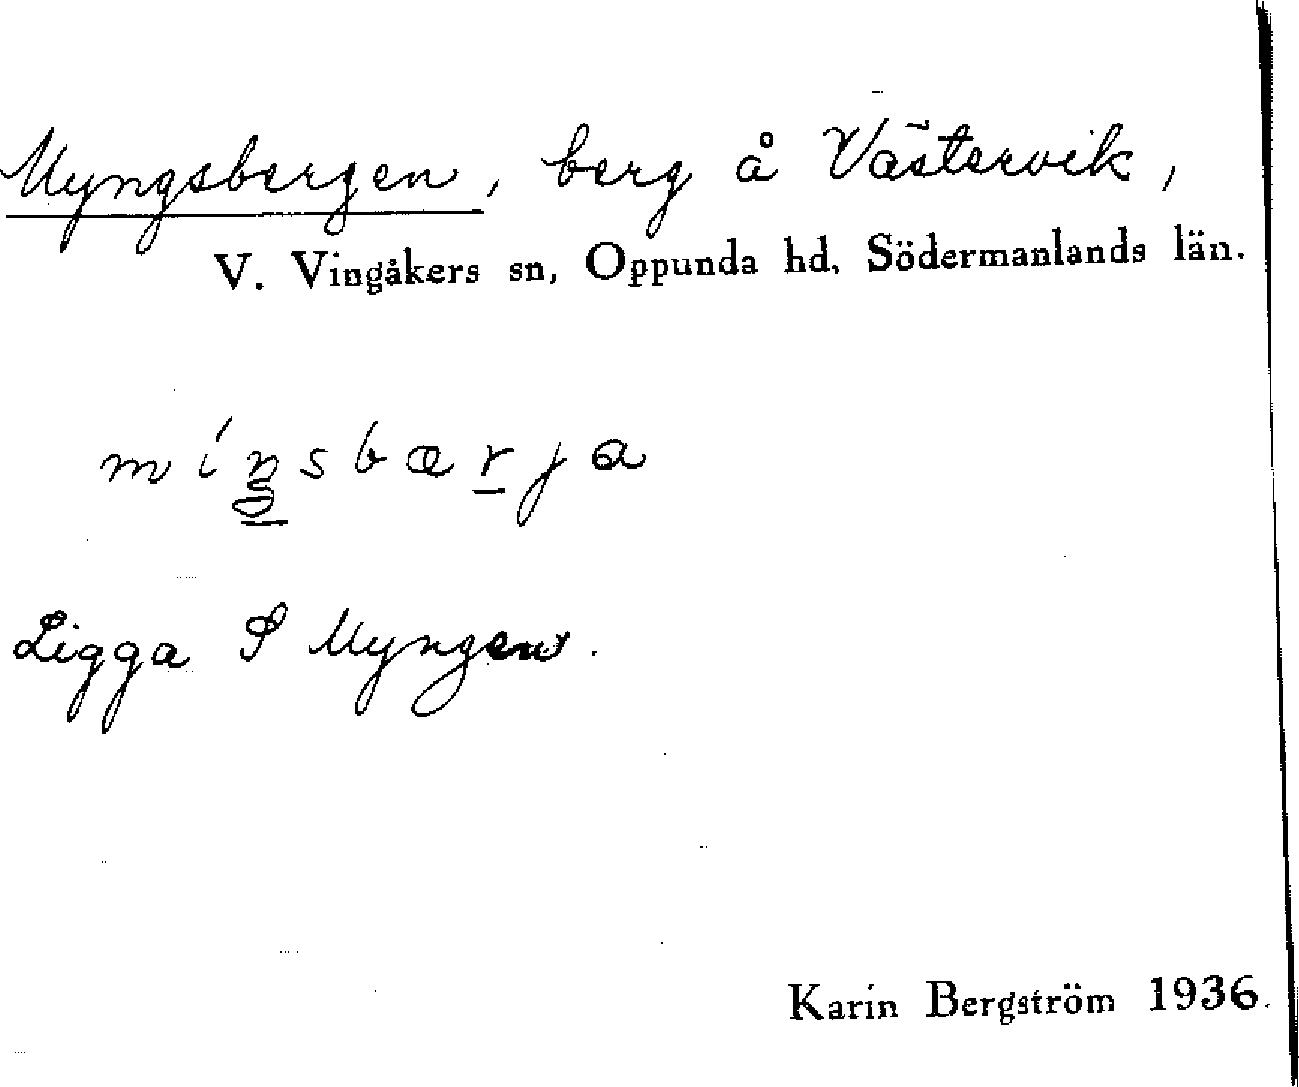 Myngsbergen, berg å Västervik,
V. Vingåkers sn, Oppunda hd, Södermanlands län.
míŋsbærja
Ligga S Myngen.
Karin Bergström 1936.